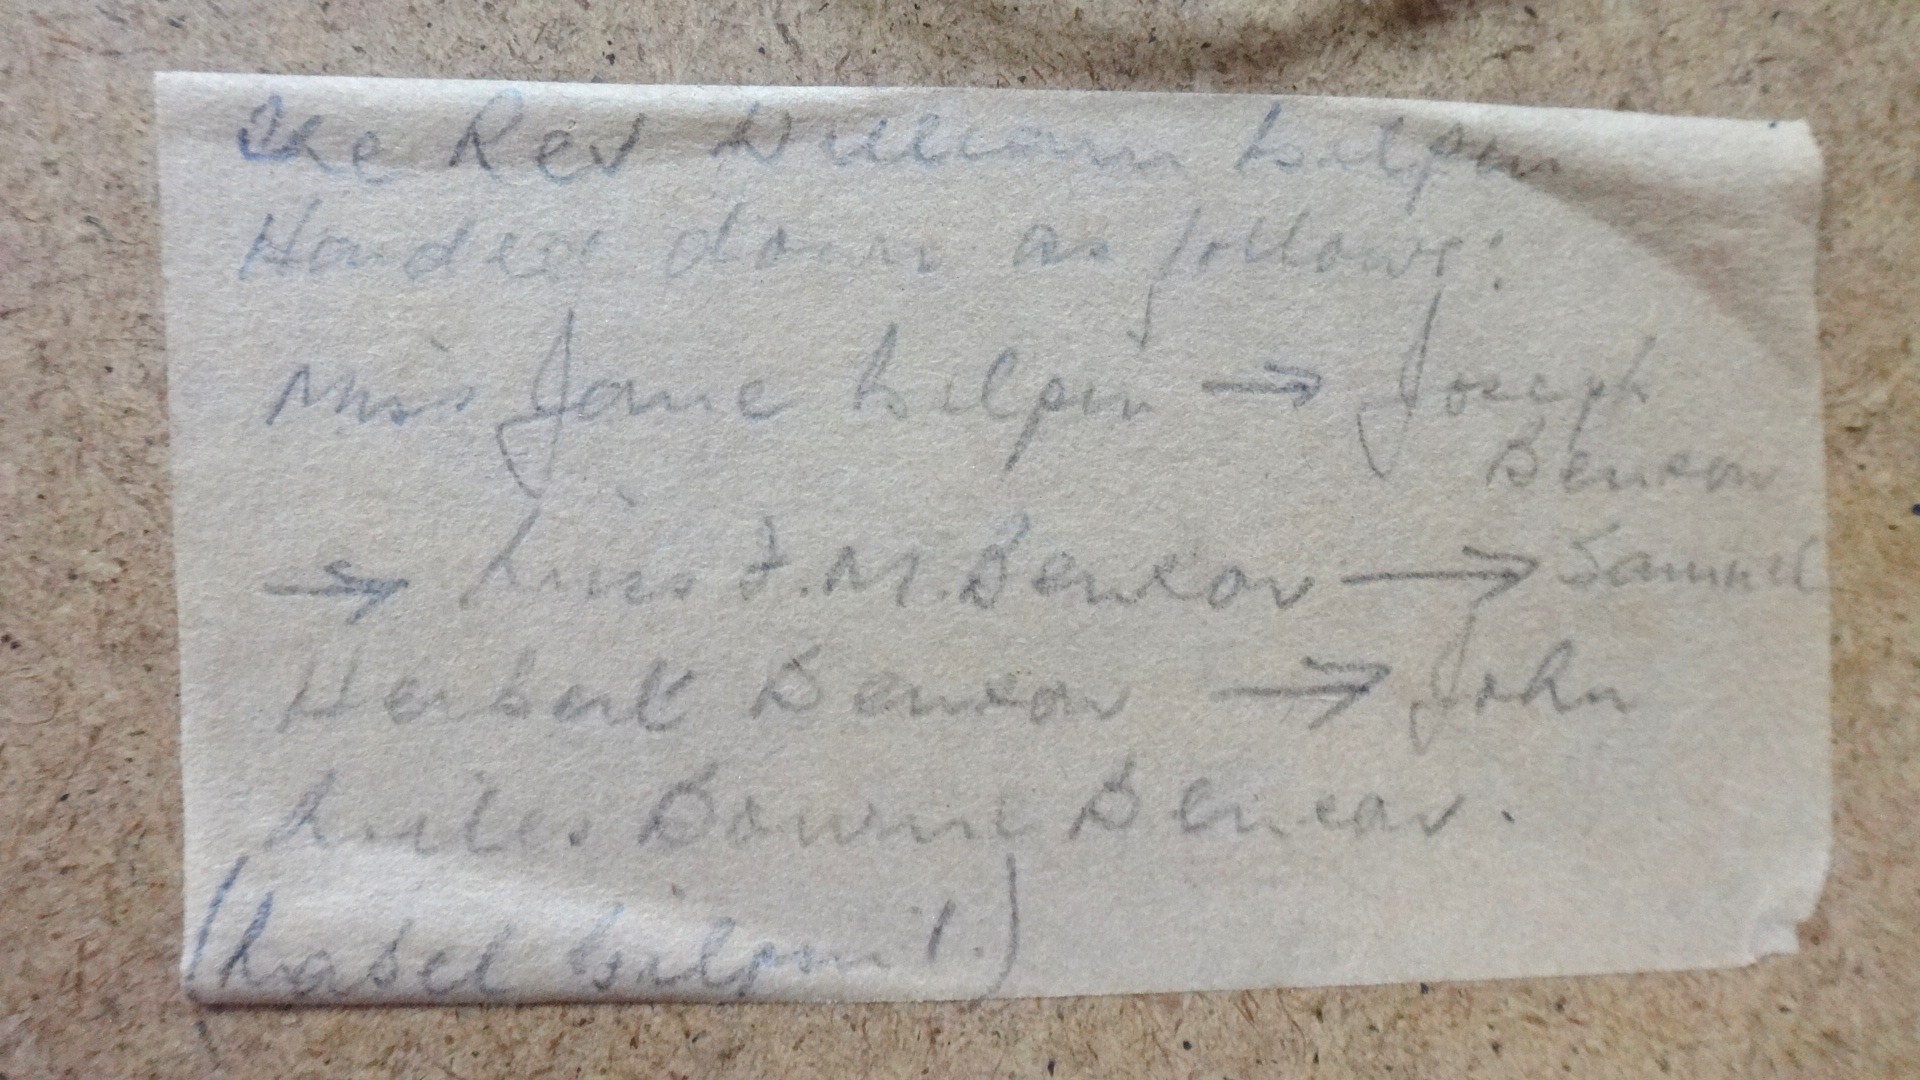 The Rev William Gilpin
Handed down as follows:
Miss Jane Gilpin → Joseph
Benson
→ Miss F.M. Benson → Samuel
Herbert Benson → John
Miles Bourne Benson.
( Gilpin 1.)